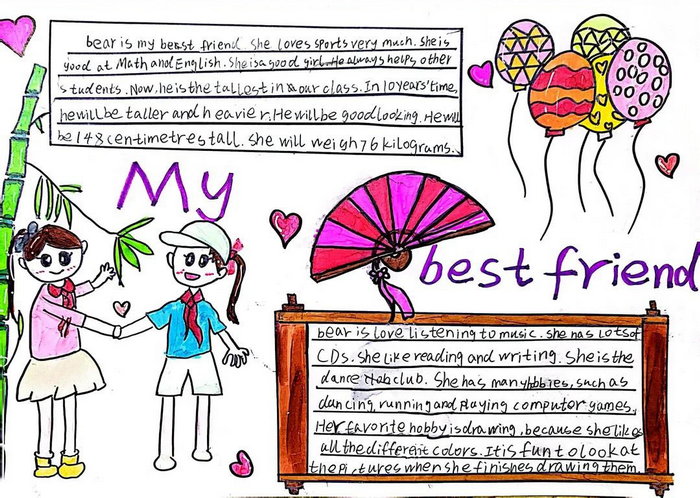 bear is my besst friend. She loves sports very much. She is
good at Math and English. She is a good girl. He always helps other
students. Now, he is the tallest in our class. In 10 years' time,
he will be taller and heavier. He will be good looking. He will
be 148 centimetres tall. She will weigh 76 kilograms.
My
best friend
bear is love listening to music. She has lots of
CDs. She like reading and writing. She is the
dance club. She has many hobbies, such as
dancing, running and playing computer games.
Her favorite hobby is drawing, because she likes
all the different colors. It is fun to look at
the pictures when she finishes drawing them.